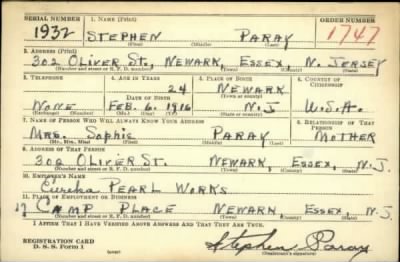 SERIAL NUMBER 1. NAME (Print) ORDER NUMBER
1932 STEPHEN PARAY 1747
(First) (Middle) (Last)
2. ADDRESS (Print)
302 OLIVER ST., NEWARK, ESSEX, N. JERSEY
(Number and street or R. F. D. number) (Town) (County) (State)
3. TELEPHONE 4. AGE IN YEARS 5. PLACE OF BIRTH 6. COUNTRY OF CITIZENSHIP
24 NEWARK
DATE OF BIRTH (Town or county)
NONE FEB. 6, 1916 N.J. U.S.A.
(Exchange) (Number) (Mo.) (Day) (Yr.) (State or country)
7. NAME OF PERSON WHO WILL ALWAYS KNOW YOUR ADDRESS 8. RELATIONSHIP OF THAT PERSON
MRS. Sophie PARAY MOTHER
(Mr., Mrs., Miss) (First) (Middle) (Last)
9. ADDRESS OF THAT PERSON
302 OLIVER ST. NEWARK, ESSEX, N.J.
(Number and street or R. F. D. number) (Town) (County) (State)
10. EMPLOYER'S NAME
Eureka PEARL WORKS
11. PLACE OF EMPLOYMENT OR BUSINESS
17 CAMP PLACE NEWARK, ESSEX, N.J.
(Number and street or R. F. D. number) (Town) (County) (State)
I AFFIRM THAT I HAVE VERIFIED ABOVE ANSWERS AND THAT THEY ARE TRUE.
REGISTRATION CARD
D. S. S. Form 1 Stephen Paray
(Registrant's signature)